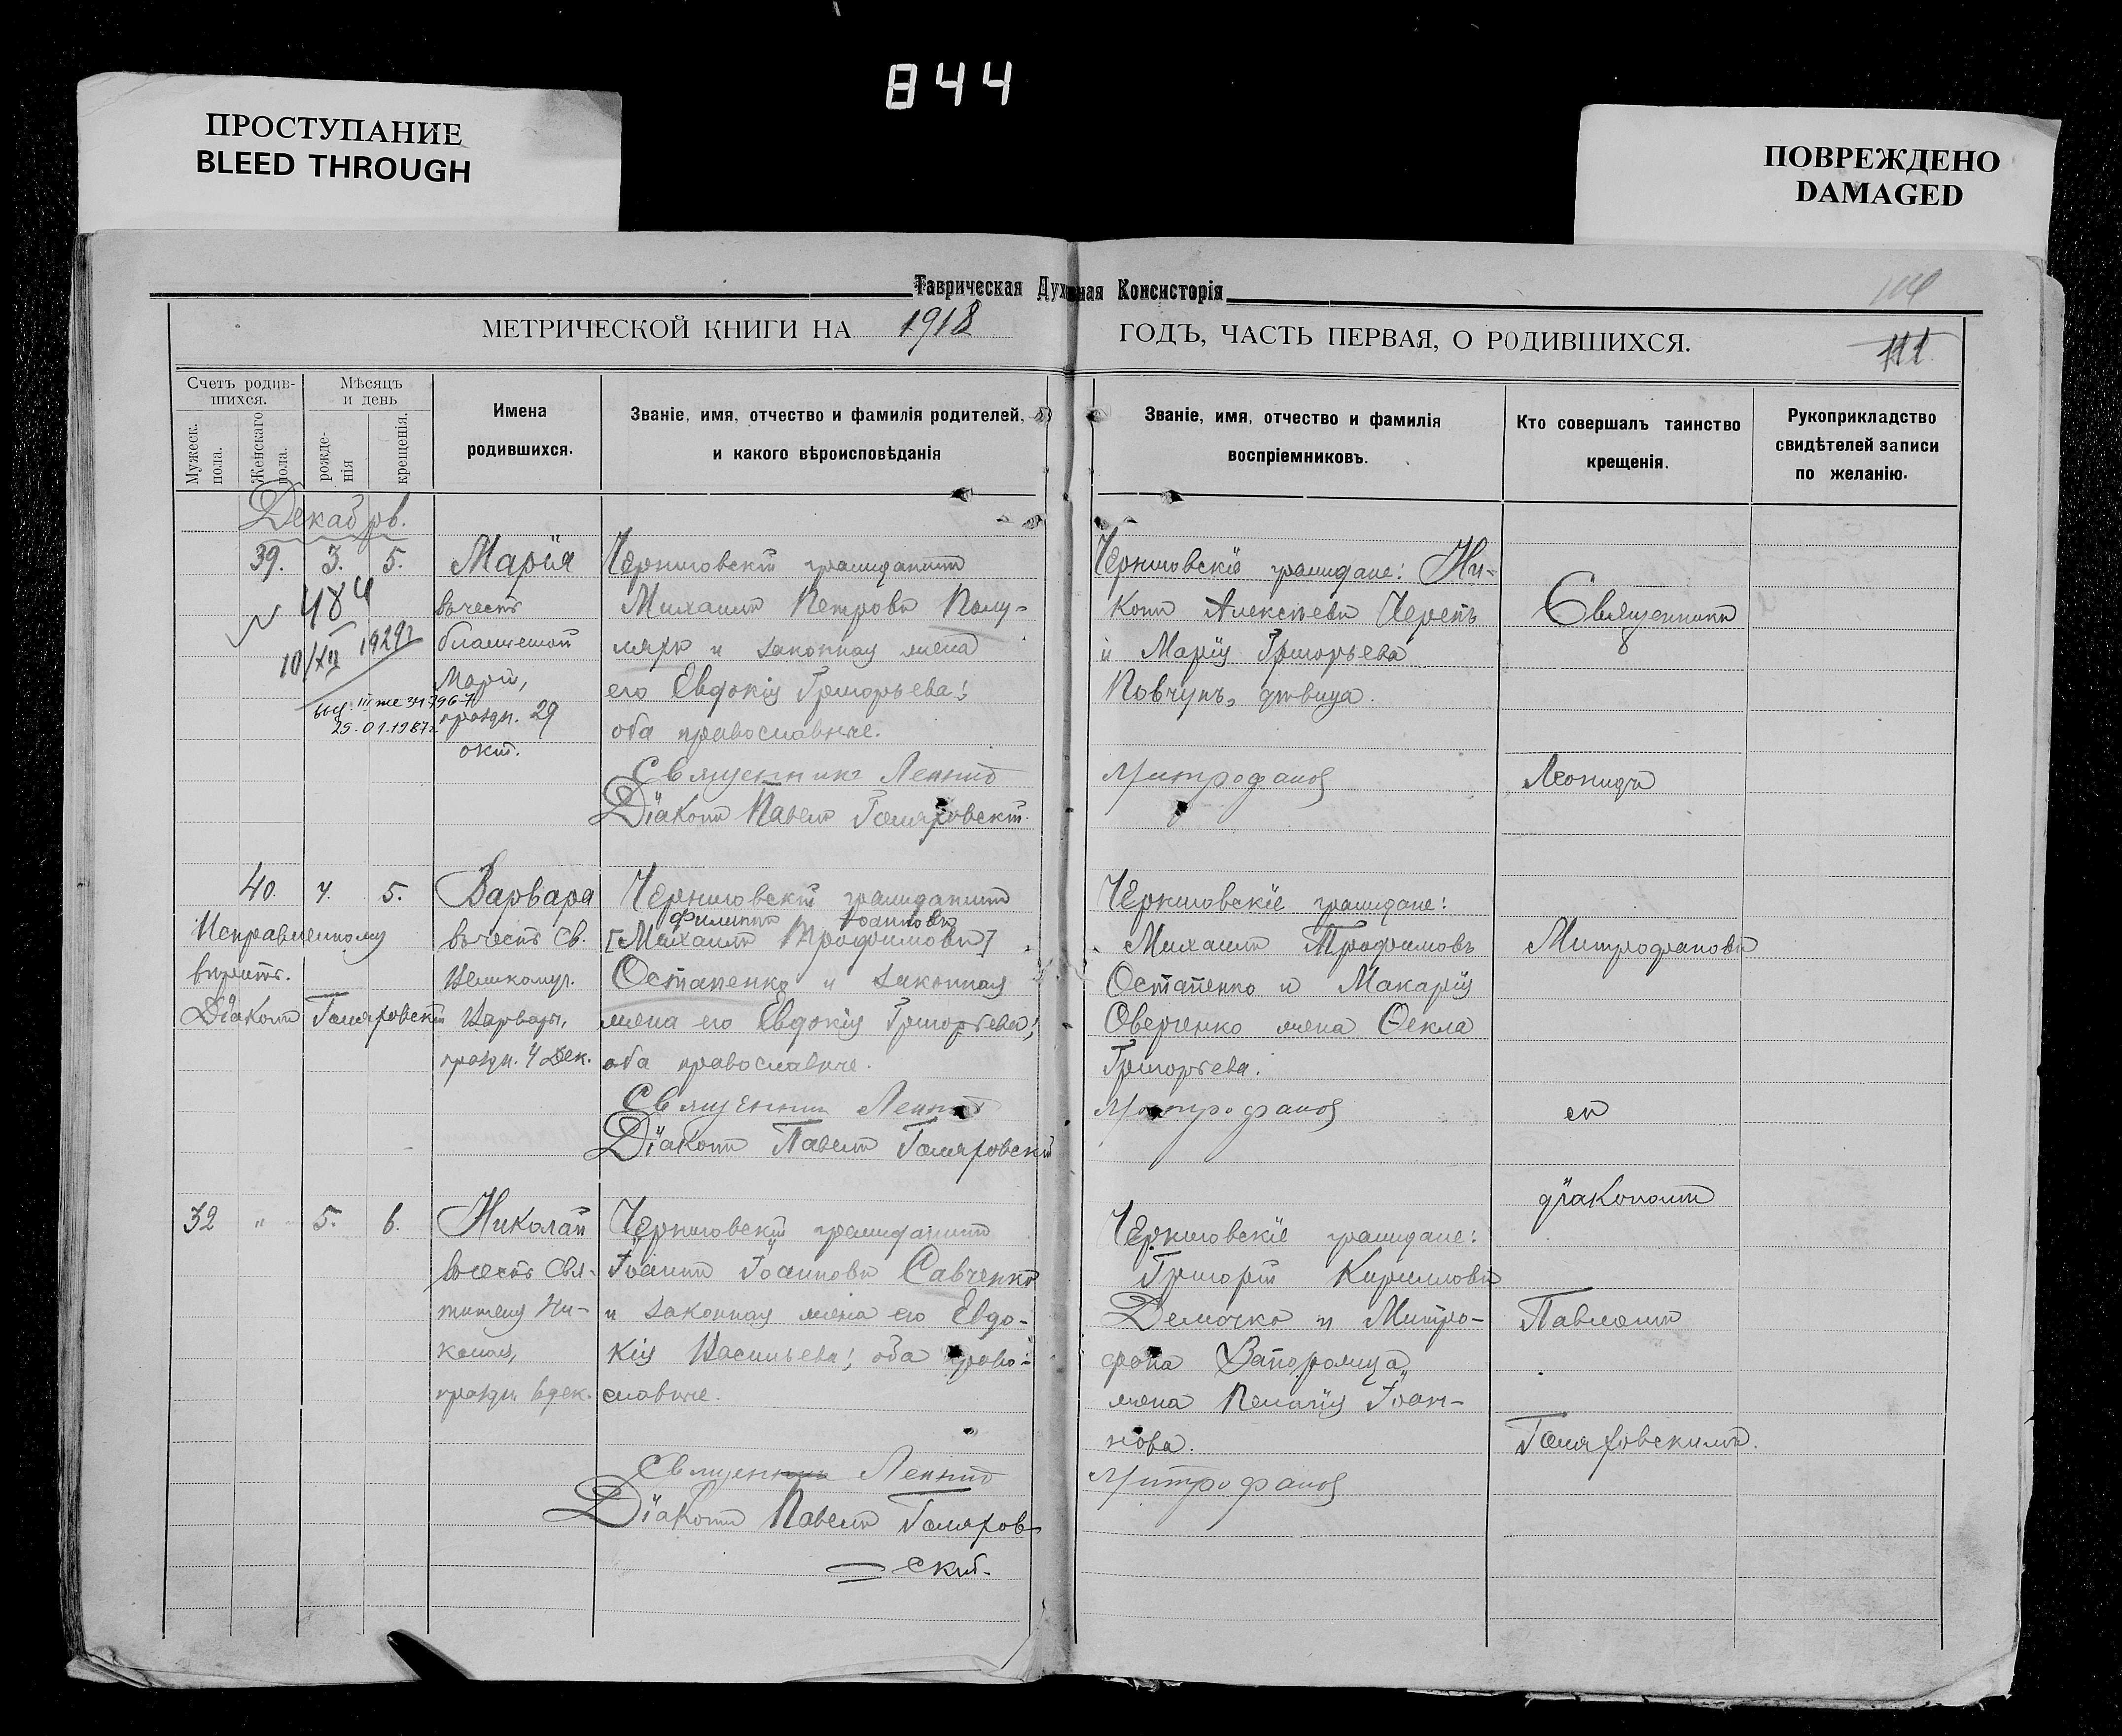 844
ПРОСТУПАНИЕ
BLEED THROUGH
ПОВРЕЖДЕНО
DAMAGED
Таврическая Духовная Консисторія
МЕТРИЧЕСКОЙ КНИГИ НА 1918 ГОДЪ, ЧАСТЬ ПЕРВАЯ, О РОДИВШИХСЯ.
111
Счетъ родив-
шихся.
Мужеск.
пола.
Женскаго
пола.
Мѣсяцъ
и день
рожде-
нія
крещенія.
Имена
родившихся.
Званіе, имя, отчество и фамилія родителей,
и какого вѣроисповѣданія
Званіе, имя, отчество и фамилія
воспріемниковъ.
Кто совершалъ таинство
крещенія.
Рукоприкладство
свидѣтелей записи
по желанію.
Декабрь.
39. 3. 5.
484
10/XII 1929г
25.01.1987г.
Марія
въ честь
блаженной
Маріи,
праздн. 29
окт.
Черниговскій гражданинъ
Михаилъ Петровъ
и законная жена
его Евдокія Григорьева;
оба православные.
Священникъ Леонид
Діаконъ Павелъ Голяховскій.
Черниговскіе граждане: Ни-
конъ Алексѣевъ Черепъ
и Марія Григорьева
Повчунъ, дѣвица.
Митрофанов
Священникъ
Леонидъ
40. 4. 5.
Исправленному
вѣрить.
Діаконъ Голяховскій
Варвара
въ честь св.
Великомуч.
Варвары,
праздн. 4 Дек.
Черниговскій гражданинъ
Филиппъ Іоанновъ
[Михаилъ Трофимовъ]
Остапенко и законная
жена его Евдокія Григорьева;
оба православные.
Священник Леонид
Діаконъ Павелъ Голяховскій
Черниговскіе граждане:
Михаилъ Трофимовъ
Остапенко и Макарія
Оверченко жена Ѳекла
Григорьева.
Митрофанов
Митрофановъ
съ
діакономъ
32 " 5. 6.
Николай
въ честь Свя-
тителя Ни-
колая,
праздн. 6 дек.
Черниговскій гражданинъ
Іоаннъ Іоанновъ Савченко
и законная жена его Евдо-
кія Васильева; оба право-
славные.
Священникъ Леонид
Діаконъ Павелъ Голяхов-
скій.
Черниговскіе граждане:
Григорій Кирилловъ
Демочко и Митро-
фана Запорожца
жена Пелагія Іоан-
нова.
Митрофанов
Павломъ
Голяховскимъ.